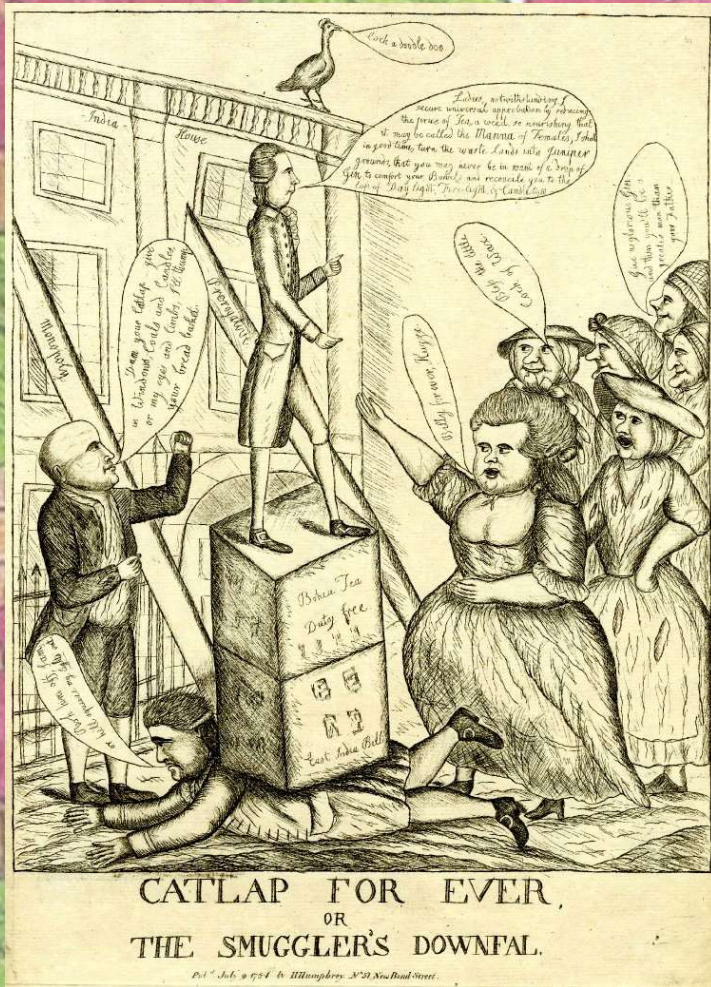 Cock a doodle doo
Ladies, notwithstanding I
secure universal approbation by reducing
the price of Tea, a weed, so nourishing that
it may be called the Manna of Females, I shall
in good time, turn the waste Lands into Juniper
grounds, that you may never be in want of a drop of
Gin to comfort your Bowels and reconcile you to the
loss of Day light, Fire-light, & Candle light.
India
House
Monopoly
Prerogative
Dam your Catlap give
in Windows, Coals and Candles
or my eyes and limbs, I'll
your bread basket.
Bless the little
Cock of Wax.
Give us glorious Gin
and then you'll be a
greater man than
your Father
Billy for ever, Huzza
him off
or he'll squeeze my
Bohea Tea
Duty free
East India Bill
CATLAP FOR EVER,
OR
THE SMUGGLER'S DOWNFAL.
Pubd. July 9 1784 by H Humphrey No. 51 New Bond Street.